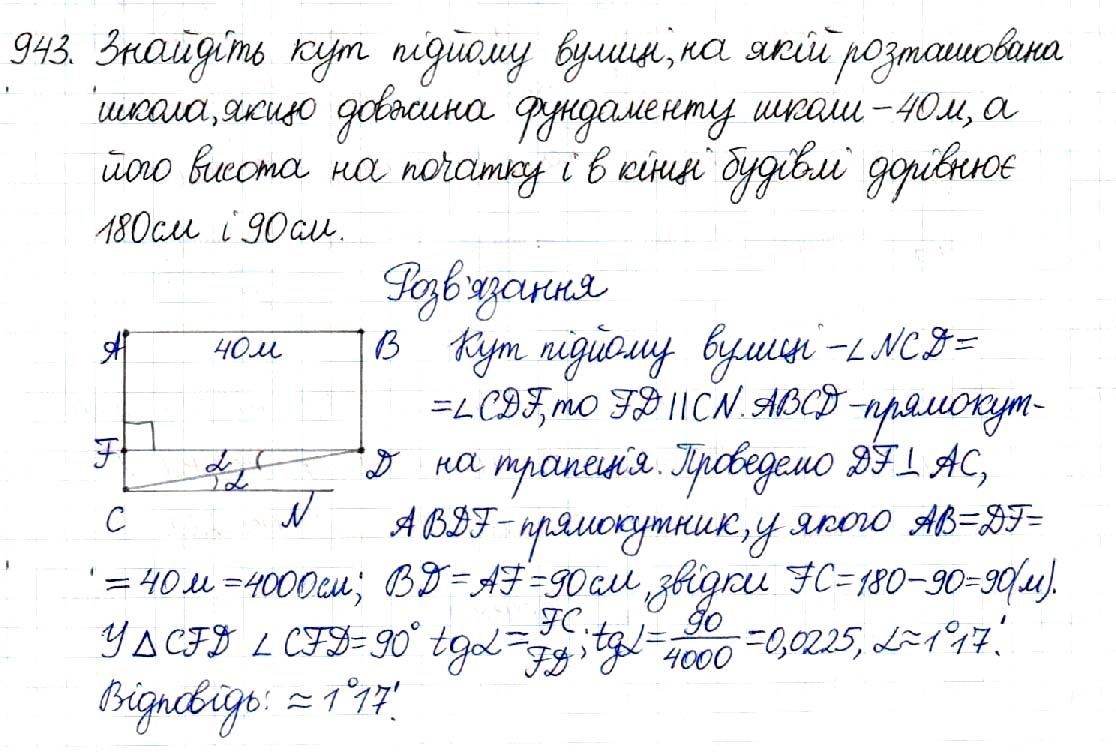 943. Знайдіть кут підйому вулиці, на якій розташована
школа, якщо довжина фундаменту школи – 40м, а
його висота на початку і в кінці будівлі дорівнює
180см і 90см.
Розв'язання
A 40м B Кут підйому вулиці – ∠NCD =
= ∠CDF, то FD || CN. ABCD – прямокут-
F α D на трапеція. Проведемо DF ⊥ AC,
α
C N ABDF – прямокутник, у якого AB = DF =
= 40м = 4000см; BD = AF = 90см, звідки FC = 180 – 90 = 90(м).
У △CFD ∠CFD = 90° tgα = FC/FD; tgα = 90/4000 = 0,0225, α ≈ 1°17'.
Відповідь: ≈ 1°17'.